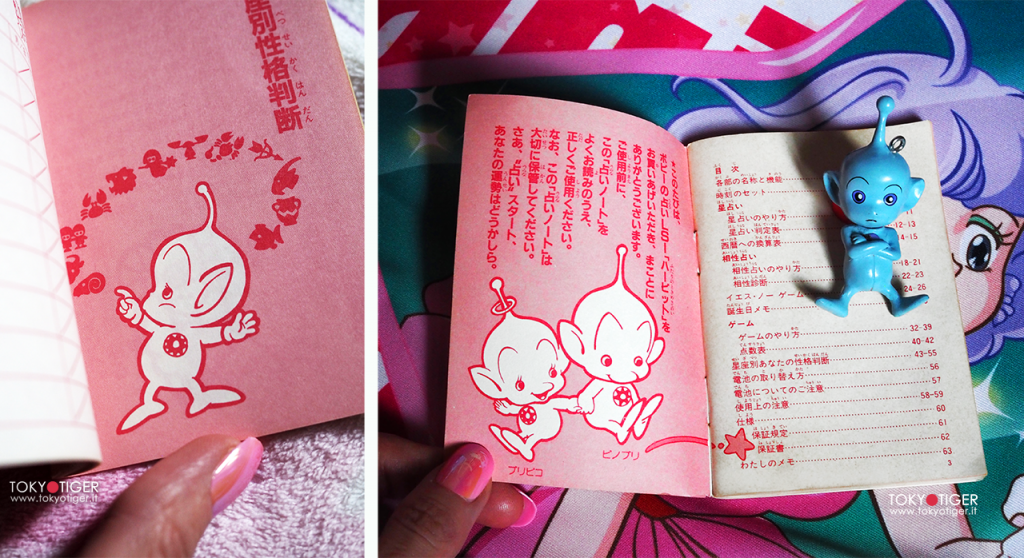 座別性格判断
TOKYO TIGER
www.tokyotiger.it
★このたびは、
ポピーの占いLSI「ハーピット」を
お買いあげいただき、まことに
ありがとうございます。
ご使用前に、
この「占いノート」を
よくお読みのうえ、
正しくご使用ください。
なお、この「占いノート」は
大切に保管してください。
さあ、“占い”スタート、
あなたの運勢はどうかしら。
プリピコ
ピノプリ
目 次
各部の名称と機能
時刻のセット
星占い
星占いのやり方 11
星占い判定表 12-13
西暦への換算表 14-15
相性占い
相性占いのやり方 18-21
相性診断 22-23
イエス・ノー ゲーム 24-26
誕生日メモ
ゲーム
ゲームのやり方 32-39
点数表 40-42
星座別あなたの性格判断 43-55
電池の取り替え方 56
電池についてのご注意 57
使用上の注意 58-59
仕様 60
保証規定 61
保証書 62
わたしのメモ 63
3
TOKYO TIGER
www.tokyotiger.it